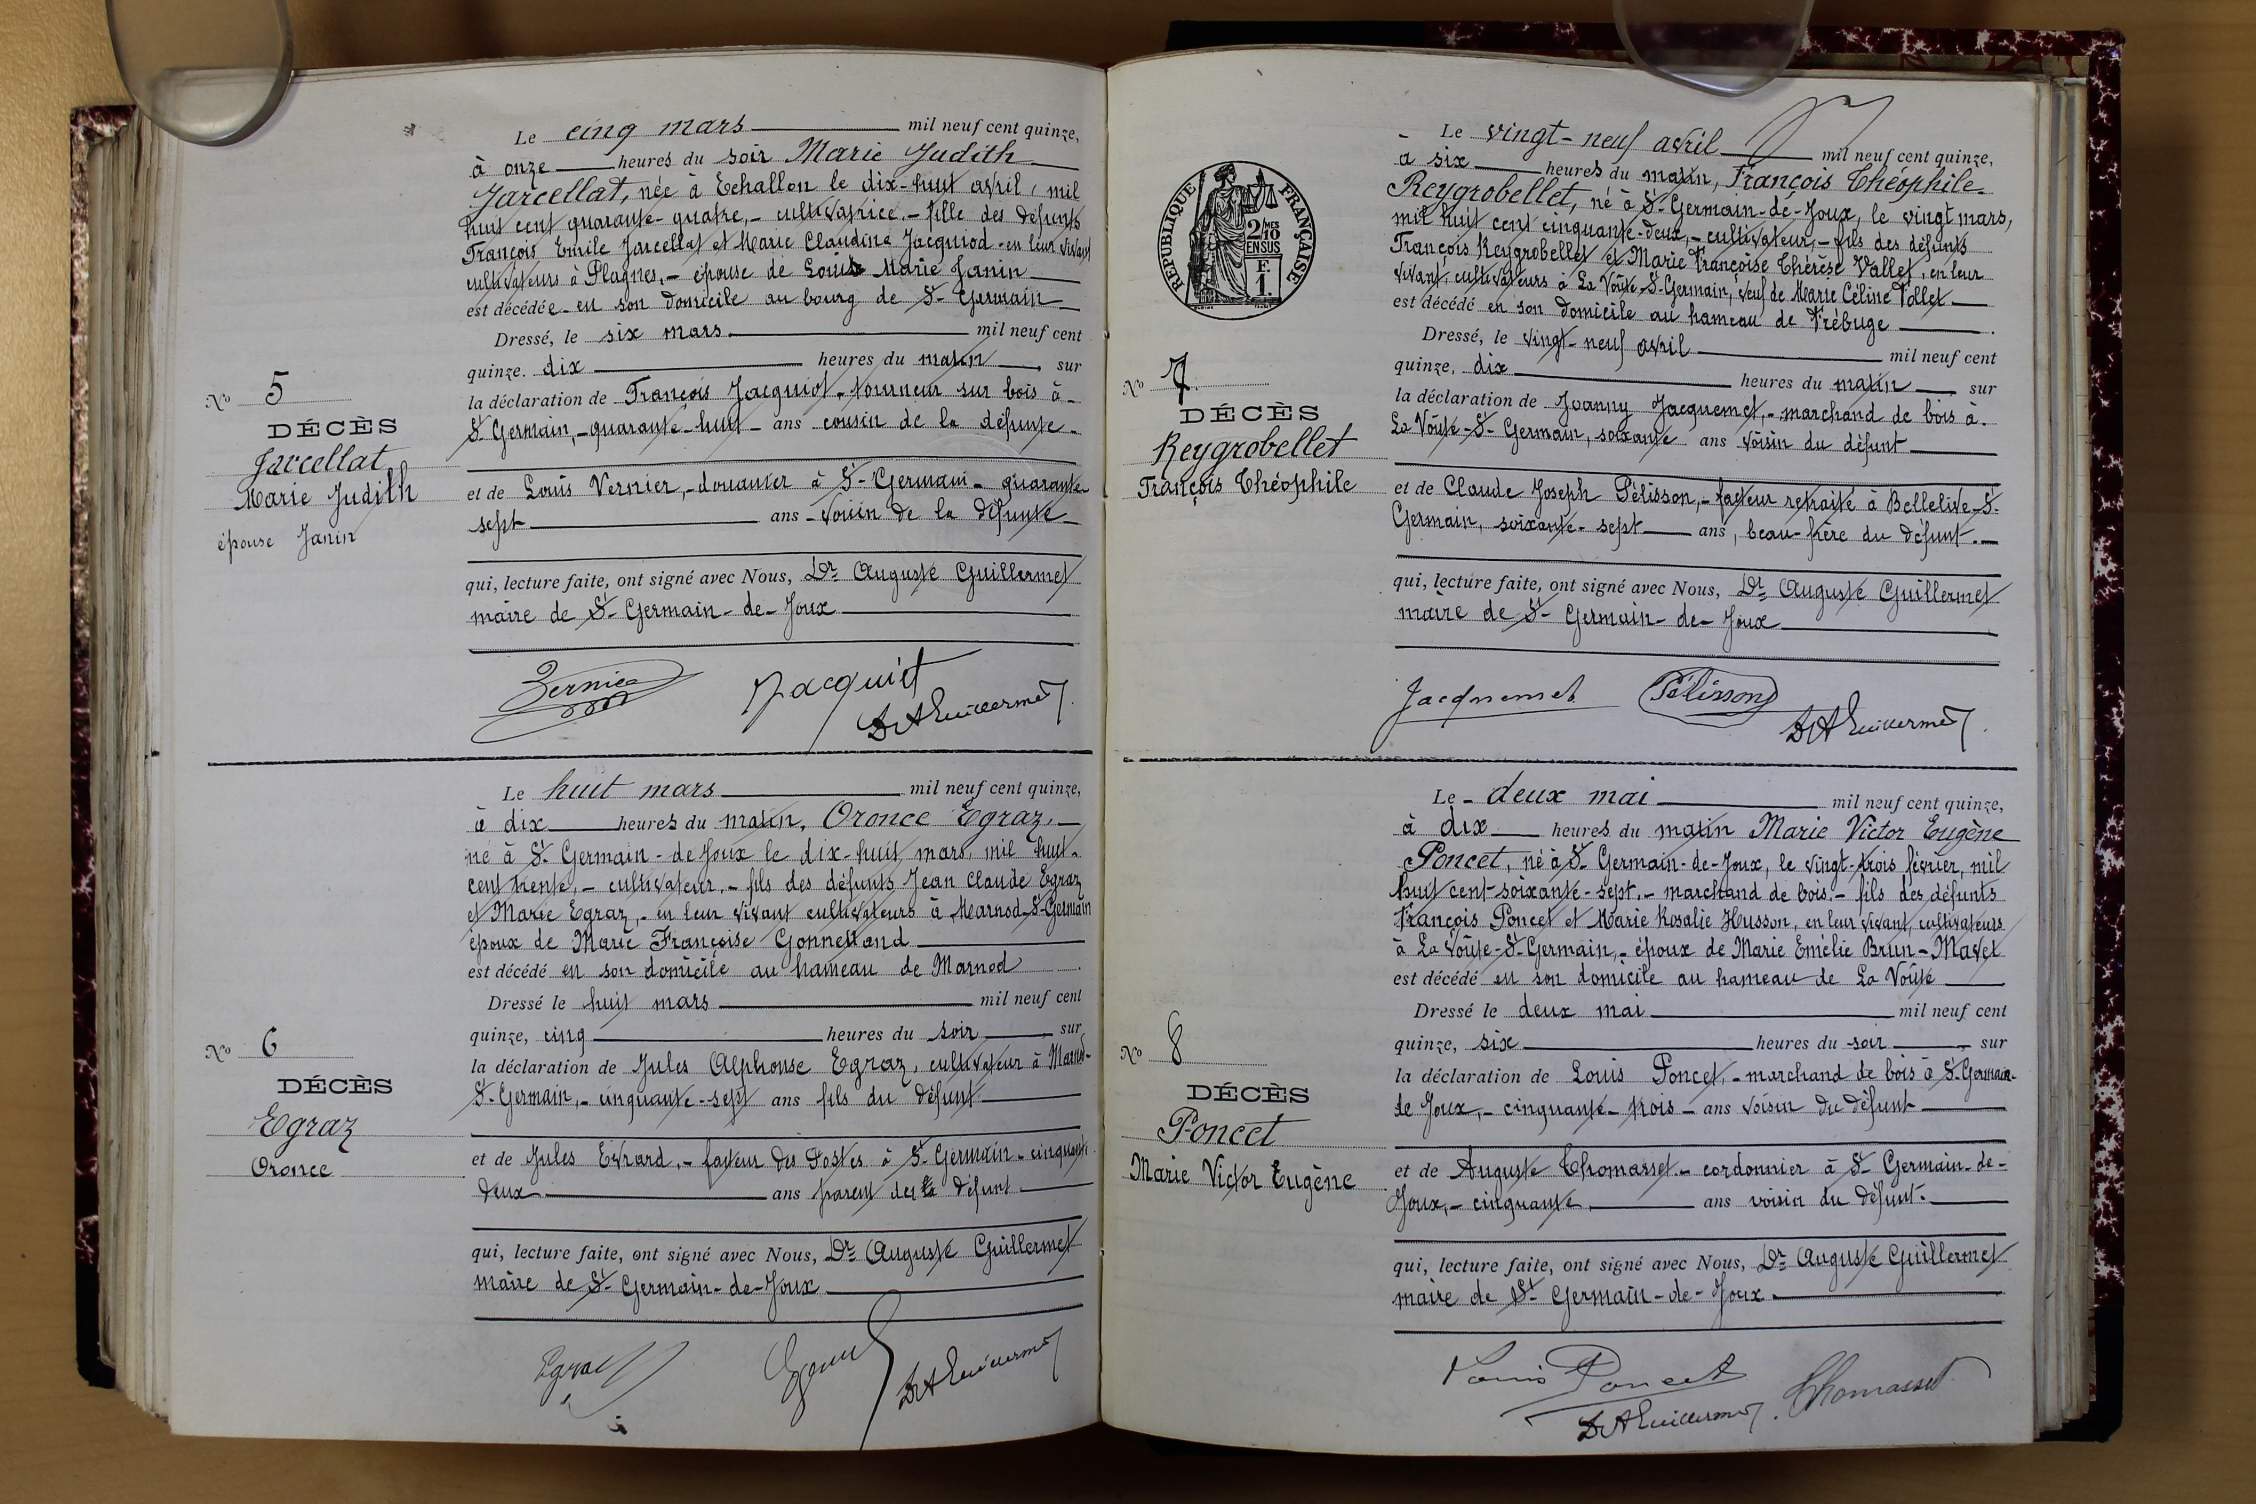 Le cinq mars mil neuf cent quinze,
à onze heures du soir Marie Judith
Jarcellat, née à Echallon le dix-huit avril, mil
huit cent quarante-quatre,- cultivatrice,- fille des défunts
François Emile Jarcellat et Marie Claudine Jacquiod - en leur vivant
cultivateurs à Plagnes,- épouse de Louis Marie Janin
est décédée en son domicile au bourg de St-Germain
Dressé, le six mars mil neuf cent
quinze. dix heures du matin, sur
la déclaration de François Jacquiot - tourneur sur bois à-
St Germain,- quarante-huit- ans cousin de la défunte-
et de Louis Vernier,- douanier à St-Germain- quarante
sept ans - voisin de la défunte
qui, lecture faite, ont signé avec Nous, Dr Auguste Guillermet
maire de St-Germain-de-Joux
No 5
DÉCÈS
Jarcellat
Marie Judith
épouse Janin
Vernier Jacquiot
Dr A Guillermet
Le huit mars mil neuf cent quinze,
à dix heures du matin, Oronce Egraz,
né à St Germain-de Joux le dix-huit mars, mil huit-
cent trente,- cultivateur,- fils des défunts Jean Claude Egraz
et Marie Egraz,- en leur vivant cultivateurs à Marnod-St-Germain
époux de Marie Françoise Gonnettand
est décédé en son domicile au hameau de Marnod
Dressé le huit mars mil neuf cent
quinze, cinq heures du soir sur
la déclaration de Jules Alphonse Egraz, cultivateur à Marnod-
St-Germain,- cinquante-sept ans fils du défunt
et de Jules Evrard,- facteur des Postes à St-Germain- cinquante
deux ans parent du défunt
qui, lecture faite, ont signé avec Nous, Dr Auguste Guillermet
maire de St-Germain-de-Joux
No 6
DÉCÈS
Egraz
Oronce
Egraz
Dr A Guillermet
RÉPUBLIQUE FRANÇAISE
2/10
MES
EN SUS
F.
1.
Le vingt-neuf avril mil neuf cent quinze,
à six heures du matin, François Théophile
Reygrobellet, né à St-Germain-de-Joux, le vingt mars,
mil huit cent cinquante-deux,- cultivateur,- fils des défunts
François Reygrobellet et Marie Françoise Thérèse Vallet, en leur
vivant, cultivateurs à La Voûte-St-Germain, veuf de Marie Céline Tollet
est décédé en son domicile au hameau de Trébuge
Dressé, le vingt-neuf avril mil neuf cent
quinze, dix heures du matin sur
la déclaration de Joanny Jacquemet,- marchand de bois à-
La Voûte-St-Germain, soixante ans voisin du défunt
et de Claude Joseph Pélisson,- facteur retraité à Bellelive-St-
Germain, soixante-sept ans, beau-frère du défunt.
qui, lecture faite, ont signé avec Nous, Dr Auguste Guillermet
maire de St-Germain-de-Joux
No 7
DÉCÈS
Reygrobellet
François Théophile
Jacquemet Pélisson
Dr A Guillermet
Le deux mai mil neuf cent quinze,
à dix heures du matin Marie Victor Eugène
Poncet, né à St-Germain-de-Joux, le vingt-trois février, mil
huit cent-soixante-sept,- marchand de bois,- fils des défunts
François Poncet et Marie Rosalie Husson, en leur vivant, cultivateurs
à La Voûte-St-Germain,- époux de Marie Emélie Brun-Mavet
est décédé en son domicile au hameau de La Voûte
Dressé le deux mai mil neuf cent
quinze, six heures du soir sur
la déclaration de Louis Poncet,- marchand de bois à St-Germain-
de Joux,- cinquante-trois- ans voisin du défunt
et de Auguste Thomasset- cordonnier à St-Germain-de-
Joux,- cinquante ans voisin du défunt.
qui, lecture faite, ont signé avec Nous, Dr Auguste Guillermet
maire de St-Germain-de-Joux
No 8
DÉCÈS
Poncet
Marie Victor Eugène
Louis Poncet Thomasset
Dr A Guillermet